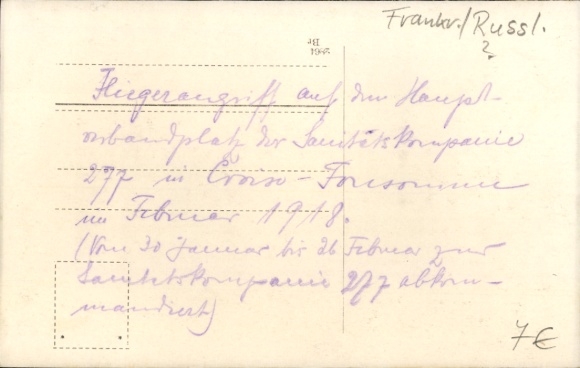 Frankr./Russl.
?
Fliegerangriff auf den Haupt-
verbandplatz der Sanitätskompanie
277 in Croix-Fonsomme
im Februar 1918.
(Vom 30 Januar bis 26 Februar zur
Sanitätskompanie 277 abkom-
mandiert)
7€